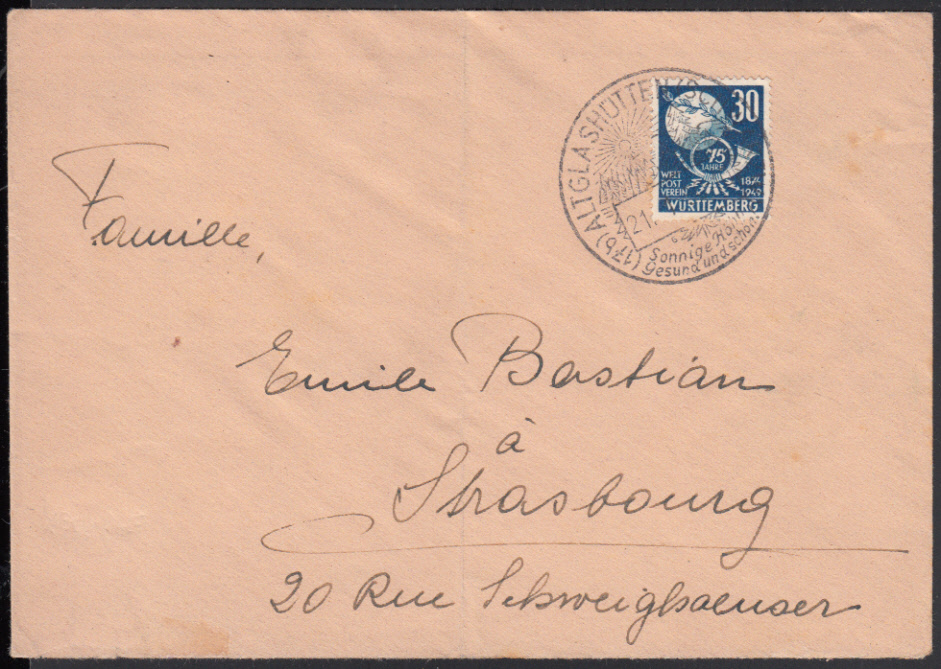 (17b) ALTGLASHÜTTEN
21.
Sonnige
Gesund und schön.
30
75
JAHRE
WELT
POST
VEREIN
1874
1949
WÜRTTEMBERG
Famille,
Emile Bastian
à
Strasbourg
20 Rue Schweighaeuser